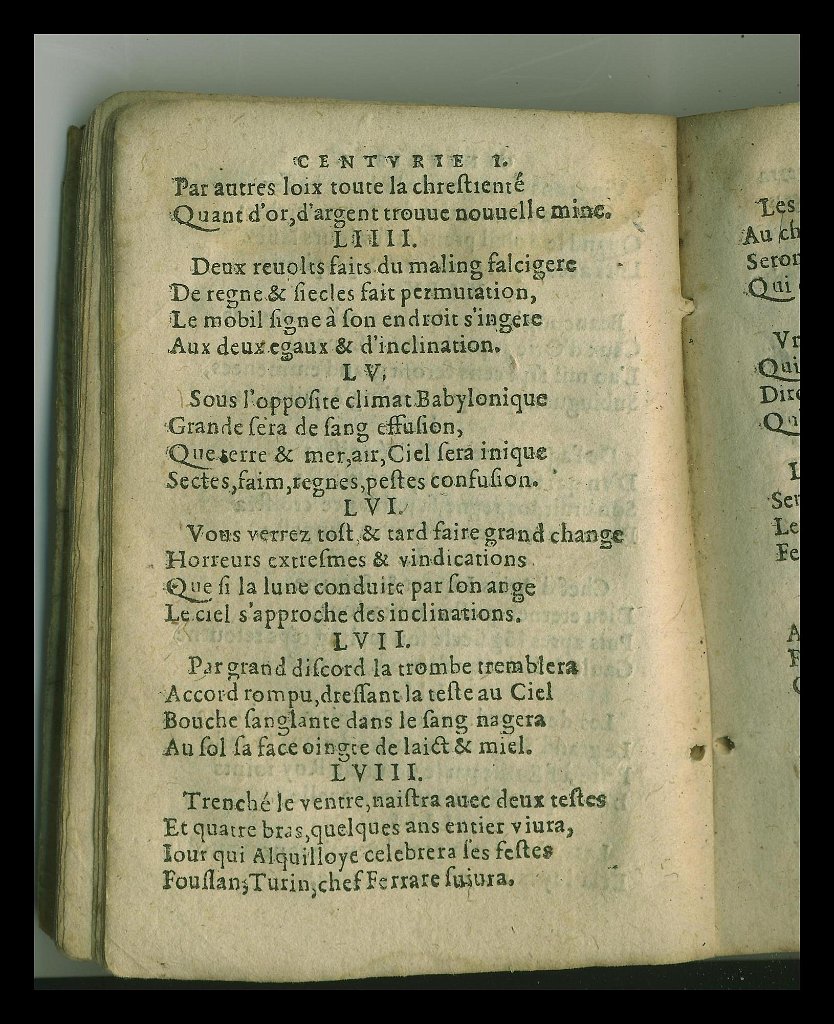 CENTVRIE I.
Par autres loix toute la chreſtienté
Quant d'or, d'argent trouue nouuelle mine.
LIIII.
Deux reuolts faits du maling falcigere
De regne & ſiecles fait permutation,
Le mobil ſigne à ſon endroit s'ingere
Aux deux egaux & d'inclination.
LV.
Sous l'oppoſite climat Babylonique
Grande ſera de ſang effuſion,
Que terre & mer, air, Ciel ſera inique
Sectes, faim, regnes, peſtes confuſion.
LVI.
Vous verrez toſt & tard faire grand change
Horreurs extreſmes & vindications
Que ſi la lune conduite par ſon ange
Le ciel s'approche des inclinations.
LVII.
Par grand diſcord la trombe tremblera
Accord rompu, dreſſant la teſte au Ciel
Bouche ſanglante dans le ſang nagera
Au ſol ſa face oingte de laict & miel.
LVIII.
Trenché le ventre, naiſtra auec deux teſtes
Et quatre bras, quelques ans entier viura,
Iour qui Alquilloye celebrera ſes feſtes
Fouſſan, Turin, chef Ferrare ſuiura.
Les
Au
Seron
Qui
Qui
Le